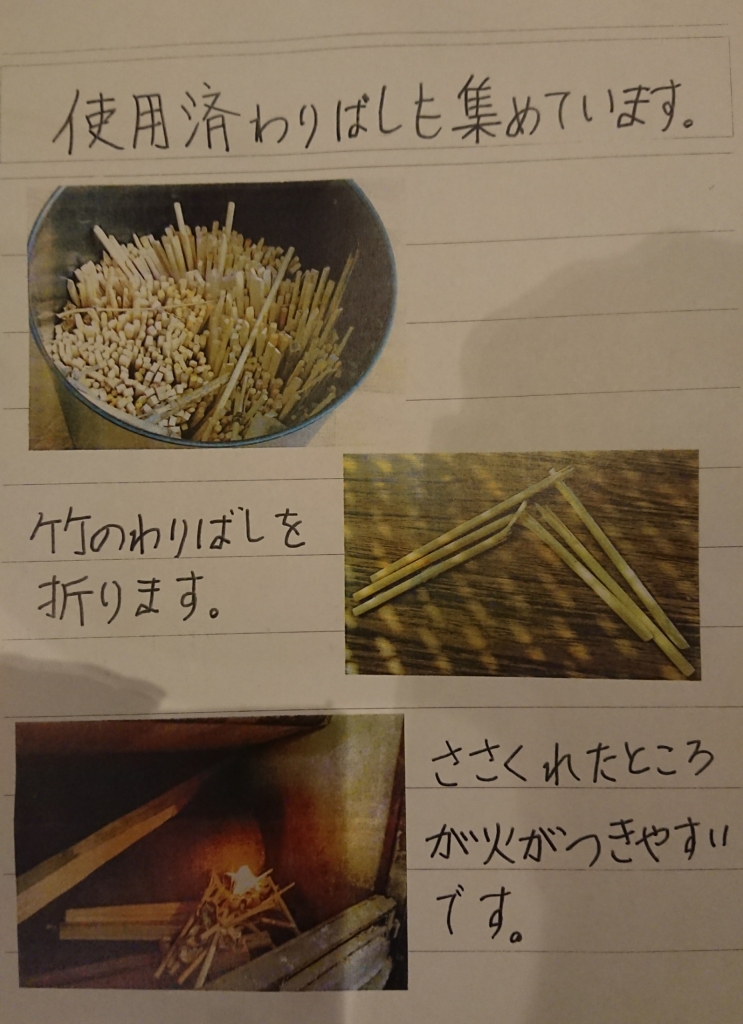 使用済わりばしも集めています。
竹のわりばしを
折ります。
ささくれたところ
が火がつきやすい
です。